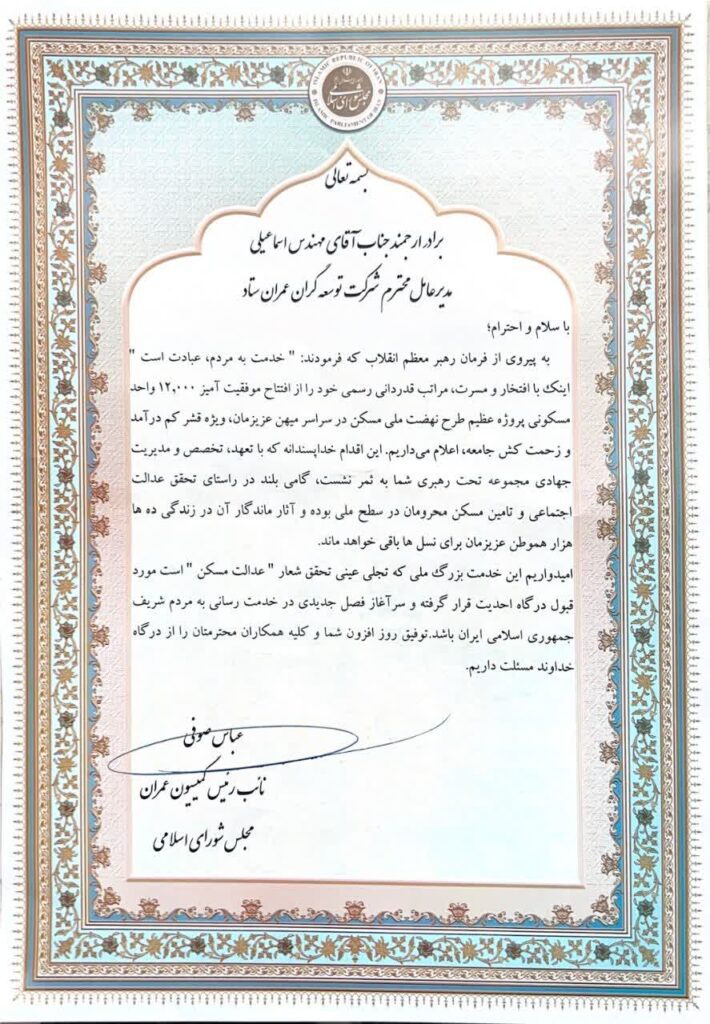 ISLAMIC REPUBLIC OF IRAN
مجلس شورای اسلامی
ISLAMIC PARLIAMENT OF IRAN
بسمه تعالی
برادر ارجمند جناب آقای مهندس اسماعیلی
مدیرعامل محترم شرکت توسعه گران عمران ستاد
با سلام و احترام؛
به پیروی از فرمان رهبر معظم انقلاب که فرمودند: " خدمت به مردم، عبادت است "
اینک با افتخار و مسرت، مراتب قدردانی رسمی خود را از افتتاح موفقیت آمیز ۱۲,۰۰۰ واحد
مسکونی پروژه عظیم طرح نهضت ملی مسکن در سراسر میهن عزیزمان، ویژه قشر کم درآمد
و زحمت کش جامعه، اعلام می‌داریم. این اقدام خداپسندانه که با تعهد، تخصص و مدیریت
جهادی مجموعه تحت رهبری شما به ثمر نشست، گامی بلند در راستای تحقق عدالت
اجتماعی و تامین مسکن محرومان در سطح ملی بوده و آثار ماندگار آن در زندگی ده ها
هزار هموطن عزیزمان برای نسل ها باقی خواهد ماند.
امیدواریم این خدمت بزرگ ملی که تجلی عینی تحقق شعار " عدالت مسکن " است مورد
قبول درگاه احدیت قرار گرفته و سرآغاز فصل جدیدی در خدمت رسانی به مردم شریف
جمهوری اسلامی ایران باشد.توفیق روز افزون شما و کلیه همکاران محترمتان را از درگاه
خداوند مسئلت داریم.
عباس صوفی
نائب رئیس کمیسیون عمران
مجلس شورای اسلامی